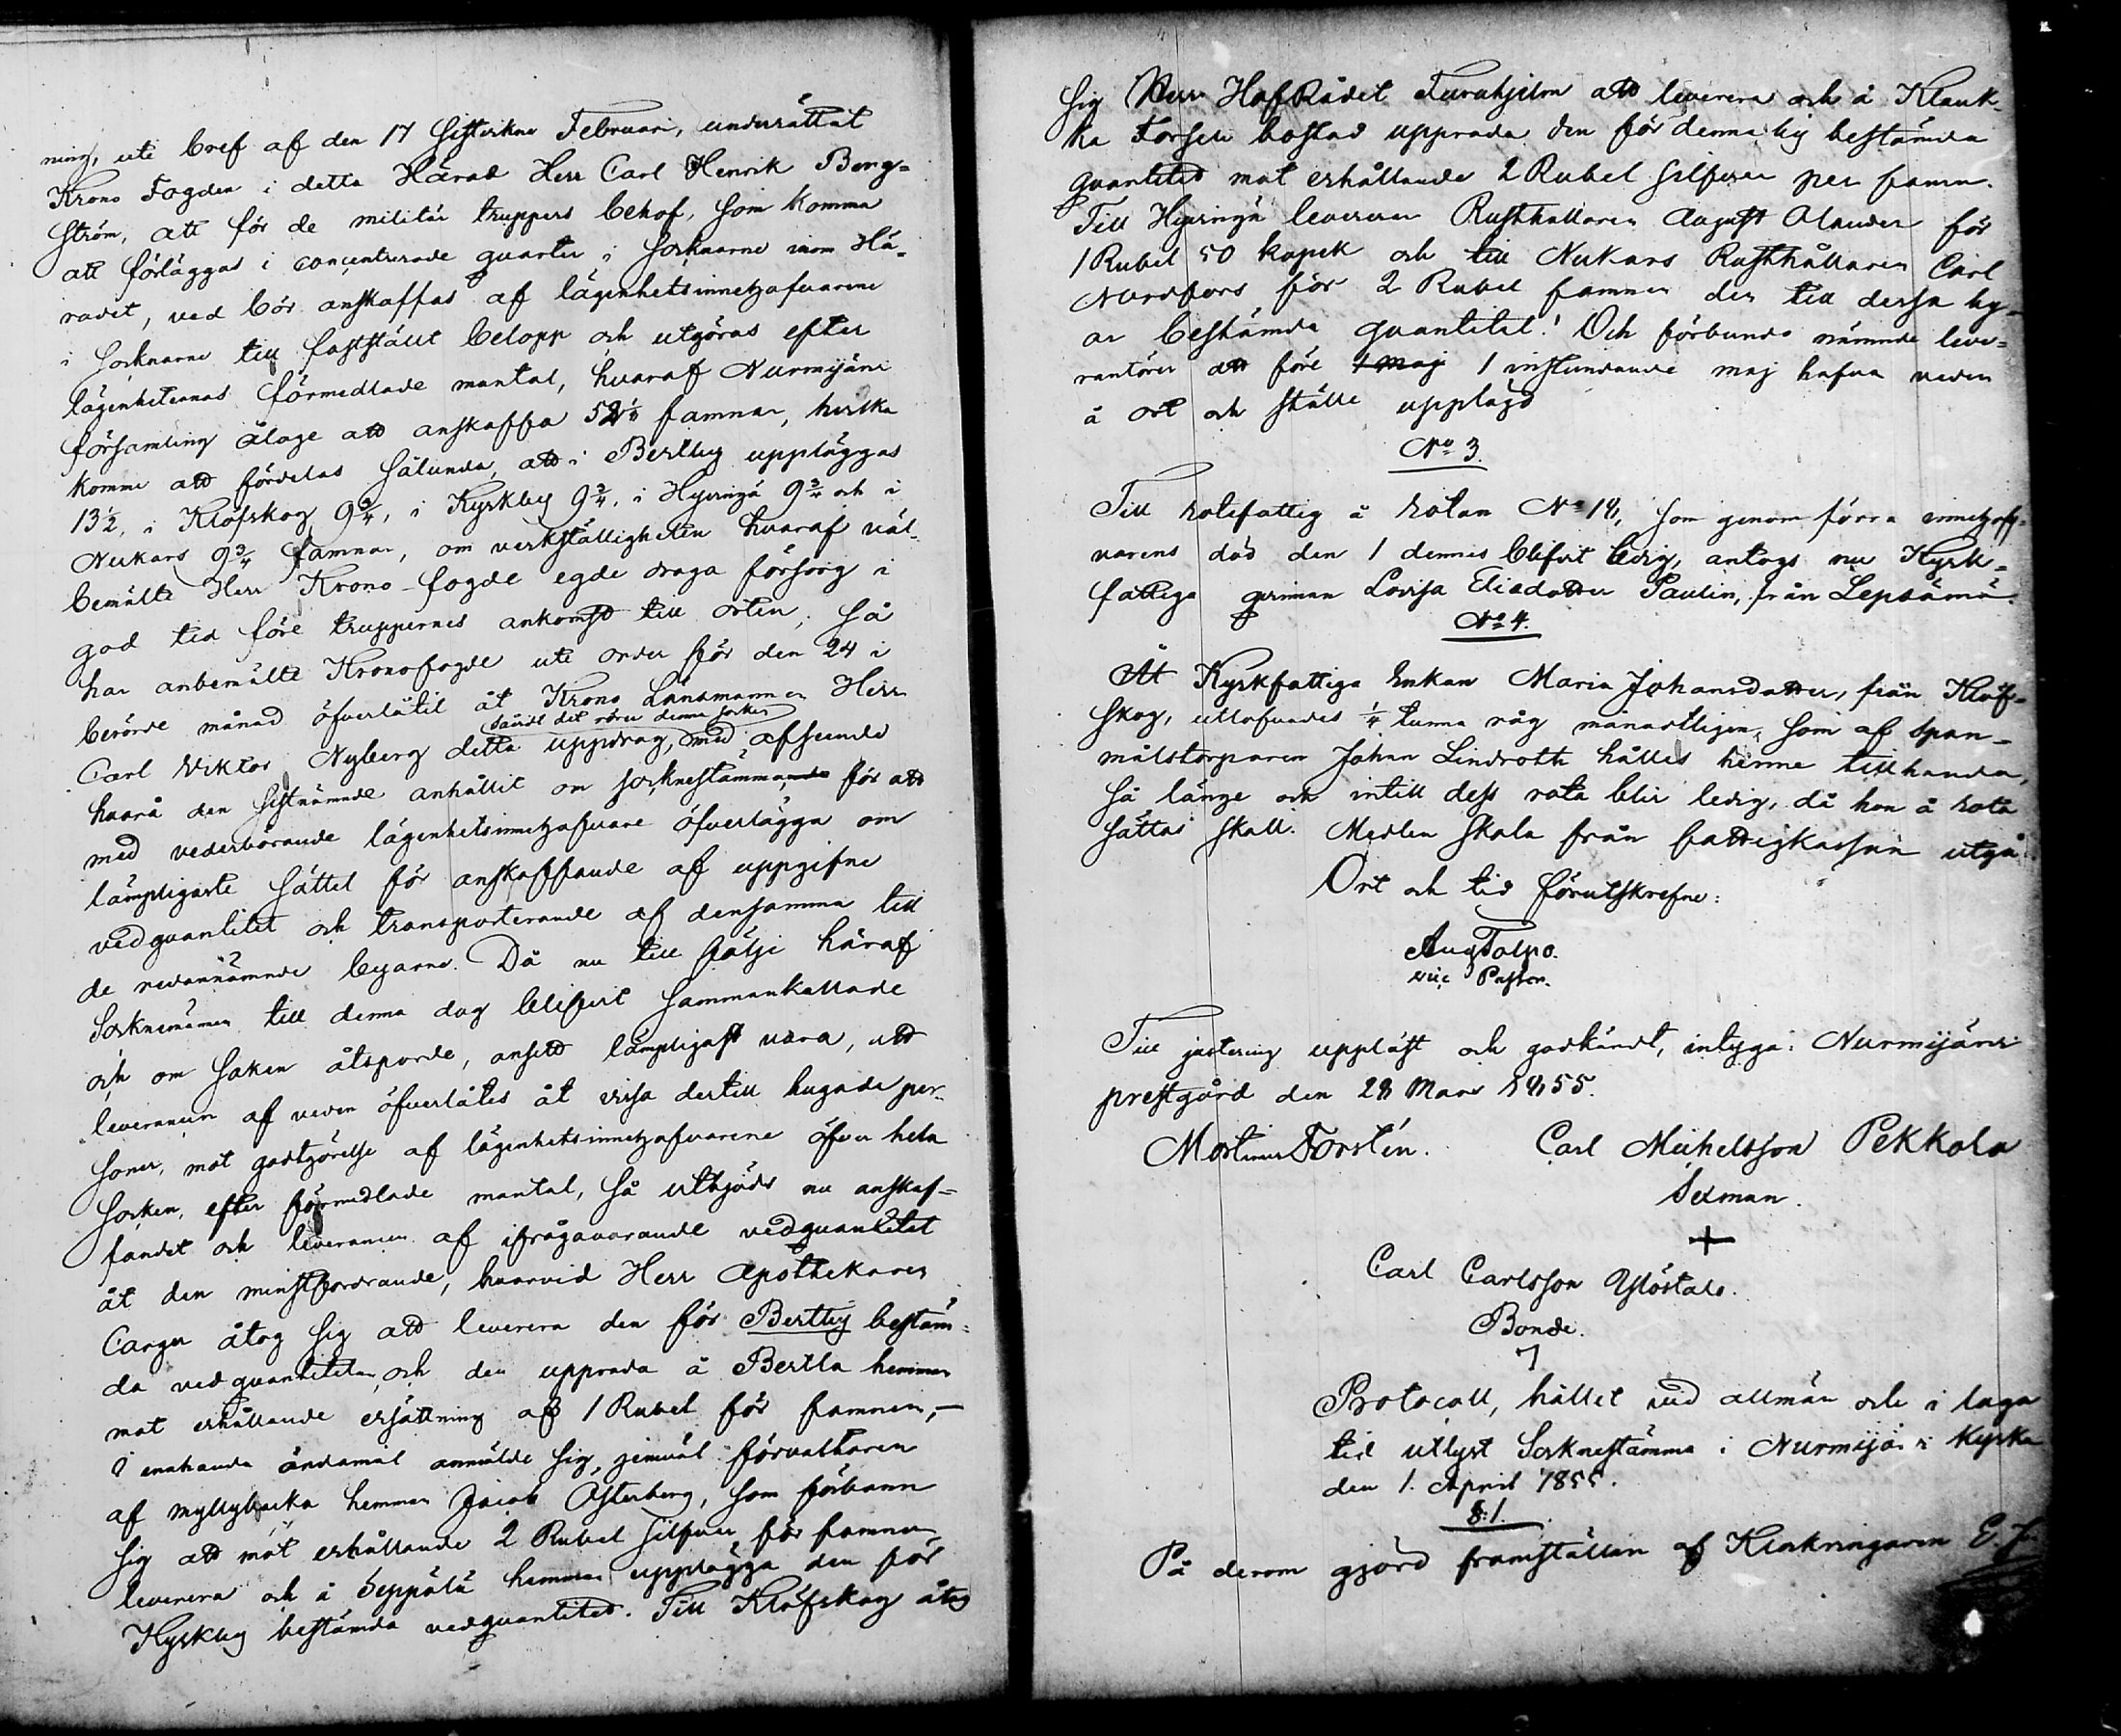 ning, uti bref af den 17 sistvikne Februari, underrättat
Krono Fogden i detta Härad Herr Carl Henrik Berg-
ström, att för de militär truppers behof, som komma
att förläggas i concentrerade quarter i socknarne inom Hä-
radet, ved bör anskaffas af lägenhetsinnehafvarene
i socknarne till fastställt belopp och utgöras efter
lägenheternas förmedlade mantal, hvaraf Nurmijärvi
församling ålage att anskaffa famnar, hvilka
komme att fördelas sålunda, att i Bertby uppläggas
13½, i Klöfskog 9¾, i Kyrkby 9¾, i Hyvingä 9¾ och i
Nukars 9¾ famnar, om verkställigheten hvaraf väl-
bemälte Herr Krono-fogde egde draga försorg i
god tid före truppernes ankomst till orten; Så
har anbemälte Kronofogde uti order för den 24 i
berörde månad öfverlåtit åt Krono Länsmannen Herr
såvidt det rörer denna socken
Carl Viktor Nyberg detta uppdrag, med afseende
hvarå den sistnämnde anhållit om socknestämma för att
med vederbörande lägenhetsinnehafvare öfverlägga om
lämpligaste sättet för anskaffande af uppgifne
vedquantitet och transporterande af densamma till
de redannämnde byarne. Då nu till följe häraf
Socknemännen till denna dag blifvit sammankallade
och om saken åtsporde, ansett lämpligast vara, att
leverancen af veden öfverlåtes åt vissa dertill hugade per-
soner, mot godtgörelse af lägenhetsinnehafvarene öfver hela
socken, efter förmedlade mantal, så utbjöds nu anskaf-
fandet och leverancen af ifrågavarande vedquantitet
åt den minstfordrande, hvarvid Herr Apothekaren
åtog sig att leverera den för Bertby bestäm-
da vedquantiteten, och den upprada å Bertla hemman
mot erhållande ersättning af 1 Rubel för famnen,—
I enahanda ändamål anmälde sig jemväl förvaltaren
af Myllybacka hemman Jacob Österberg, som förbann
sig att mot erhållande 2 Rubel silfver för famnen
leverera och å Seppälä hemman upplägga den för
Kyrkby bestämda vedquantitet. Till Klöfskog åtog
sig Herr HofRådet Furuhjelm att leverera och å Klauk-
ka Forsen bostad upprada den för denna by bestämda
quantitet mot erhållande 2 Rubel silfver per famn.
Till Hyvingä levererar Rusthållaren August Olander för
1 Rubel 50 kopek och till Nukars Rusthållaren Carl
Nordfors för 2 Rubel famnen den till dessa by-
ar bestämda quantitet. Och förbundo nämnde leve-
rantörer att före 1 maj 1 instundande maj hafva veden
å ort och ställe upplagd
No 3.
Till rotefattig å rotan No 18, som genom förra innehaf-
varens död den 1 dennes blifvit ledig, antogs nu Kyrk-
fattiga qvinnan Lovisa Eliadotter Paulin, från Lepsämä.
No 4.
Åt Kyrkfattiga Enkan Maria Johansdotter, från Klöf-
skog, utlofvades ¼ tunna råg månadtligen, som af span-
målstorparen Johan Lindroth hålles henne tillhanda,
så länge och intill dess rota blir ledig, då hon å rota
sättas skall. Medlen skola från fattigkassan utgå.
Ort och tid förutskrefne:
Aug Talpo.
vice Pastor.
Till justering uppläst och godkändt, intyga: Nurmijärvi
prestgård den 28 Mars 1855.
Mortimer Forstén. Carl Michelsson Pekkola
Sexman.
+
Carl Carlsson Ylöstalo.
Bonde.
Protocoll, hållet vid allmän och i laga
tid utlyst Socknestämma i Nurmijärvi Kyrka
den 1. April 1855.
§. 1.
På derom gjord framställan af Klockringaren E. J.